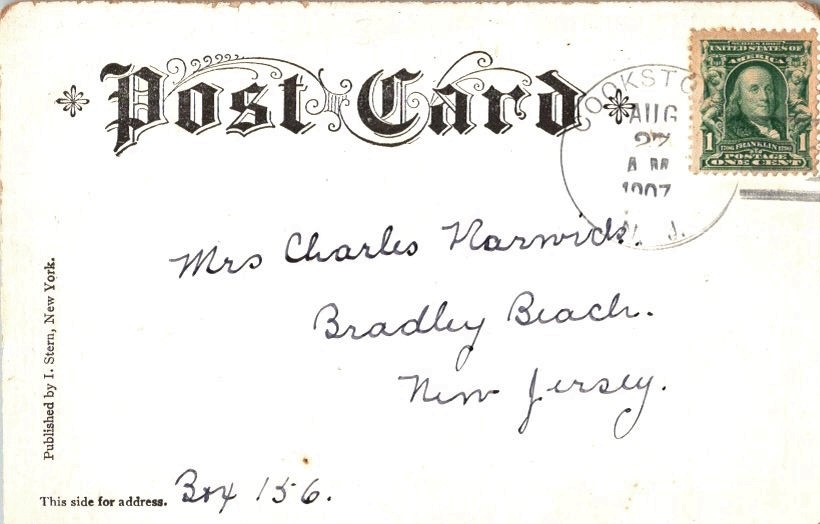 Post Card
COOKSTO
AUG
27
A M
1907
N. J.
SERIES 1902
UNITED STATES OF
AMERICA
1 1706 FRANKLIN 1790 1
POSTAGE
ONE CENT
Mrs Charles
Bradley Beach.
New Jersey.
Box 156.
Published by I. Stern, New York.
This side for address.